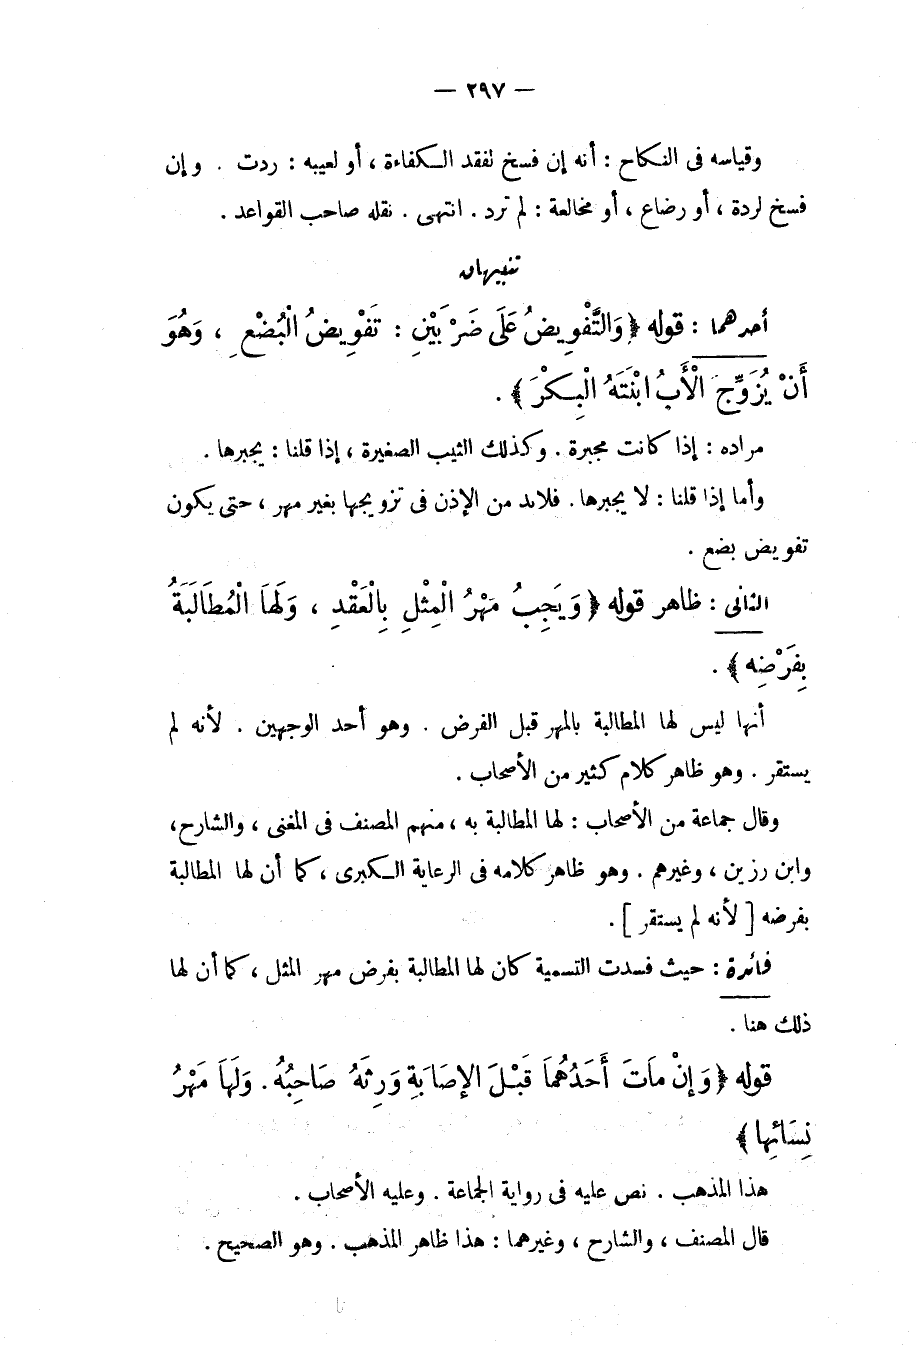 — ٢٩٧ —
وقياسه فى النكاح : أنه إن فسخ لفقد الكفاءة ، أو لعيبه : ردت . وإن
فسخ لردة ، أو رضاع ، أو مخالعة : لم ترد . انتهى . نقله صاحب القواعد .
تنبيهان
أحدهما : قوله ﴿ وَالتَّفْوِيضُ عَلَى ضَرْبَيْنِ : تَفْوِيضُ الْبُضْعِ ، وَهُوَ
أَنْ يُزَوِّجَ الْأَبُ ابْنَتَهُ الْبِكْرَ ﴾ .
مراده : إذا كانت مجبرة . وكذلك الثيب الصغيرة ، إذا قلنا : يجبرها .
وأما إذا قلنا : لا يجبرها . فلابد من الإذن فى تزويجها بغير مهر ، حتى يكون
تفويض بضع .
الثانى : ظاهر قوله ﴿ وَيَجِبُ مَهْرُ الْمِثْلِ بِالْعَقْدِ ، وَلَهَا الْمُطَالَبَةُ
بِفَرْضِهِ ﴾ .
أنها ليس لها المطالبة بالمهر قبل الفرض . وهو أحد الوجهين . لأنه لم
يستقر . وهو ظاهر كلام كثير من الأصحاب .
وقال جماعة من الأصحاب : لها المطالبة به ، منهم المصنف فى المغنى ، والشارح ،
وابن رزين ، وغيرهم . وهو ظاهر كلامه فى الرعاية الكبرى ، كما أن لها المطالبة
بفرضه [ لأنه لم يستقر ] .
فائدة : حيث فسدت التسمية كان لها المطالبة بفرض مهر المثل ، كما أن لها
ذلك هنا .
قوله ﴿ وَإِنْ مَاتَ أَحَدُهُمَا قَبْلَ الإِصَابَةِ وَرِثَهُ صَاحِبُهُ . وَلَهَا مَهْرُ
نِسَائِهَا ﴾
هذا المذهب . نص عليه فى رواية الجماعة . وعليه الأصحاب .
قال المصنف ، والشارح ، وغيرهما : هذا ظاهر المذهب . وهو الصحيح .